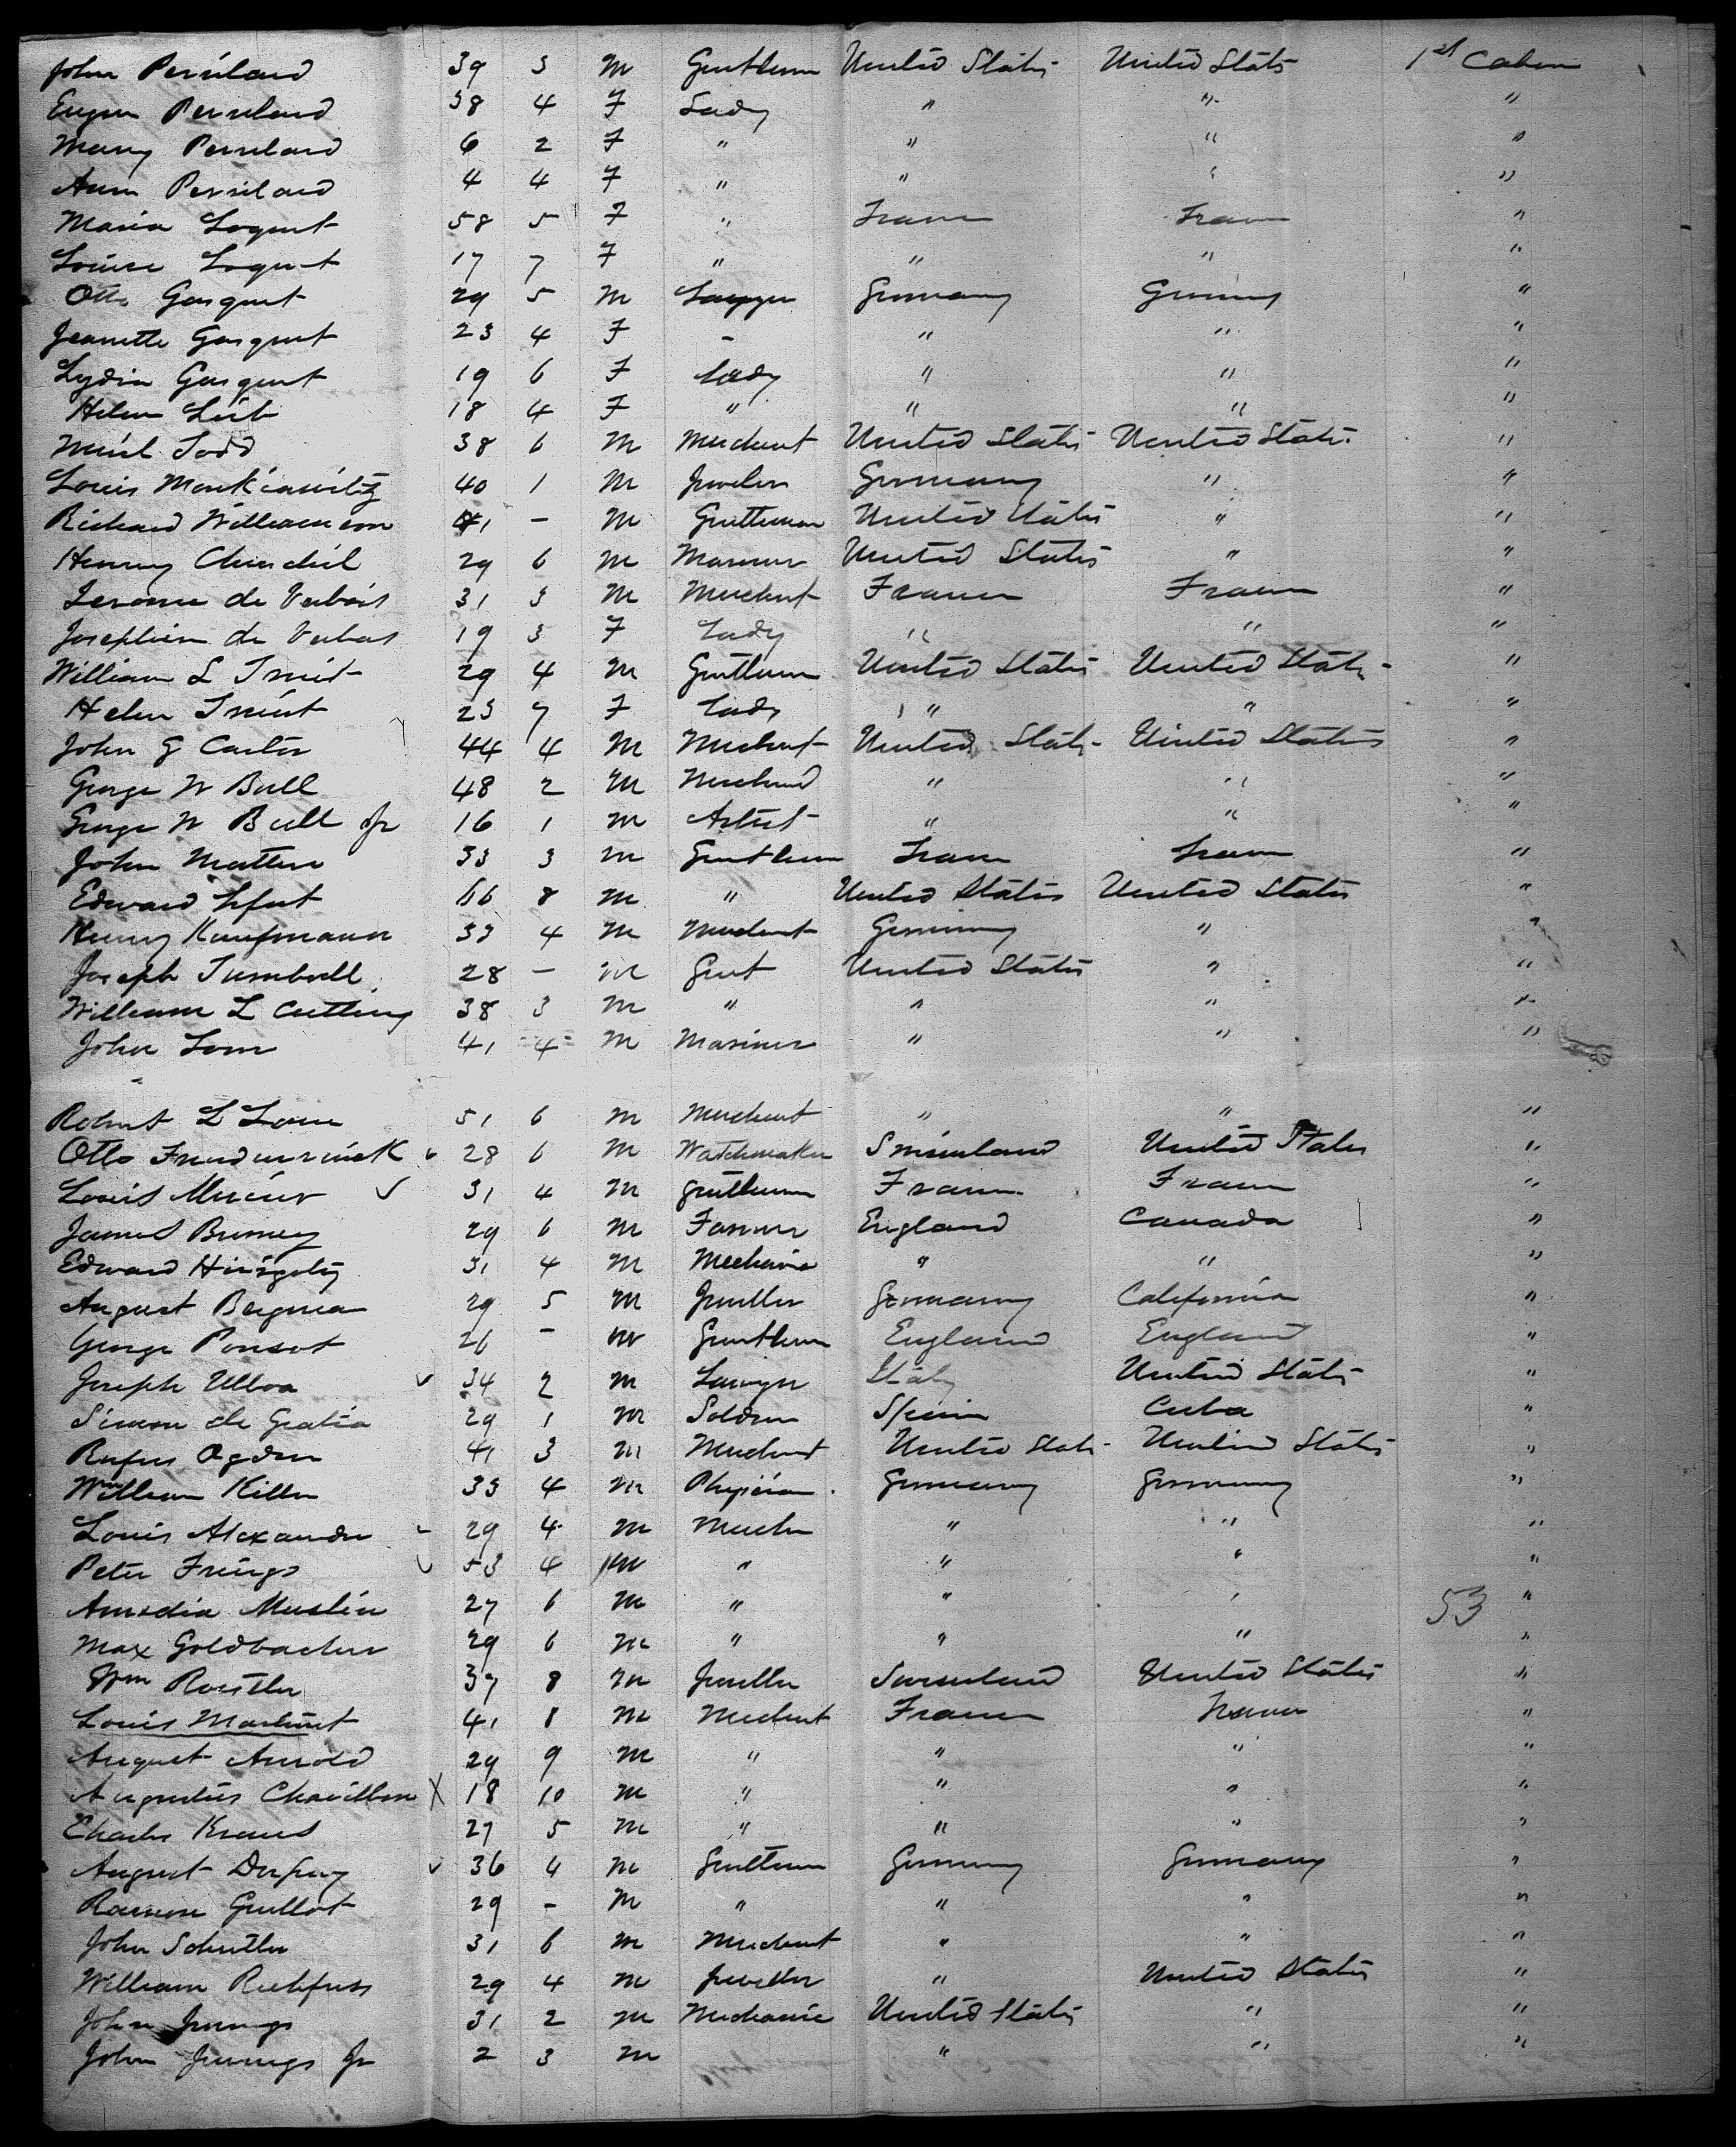 John Persilaid 39 3 M Gentleman United States United States 1st Cabin
Eugen Persilaid 38 4 F Lady " " "
Mary Persilaid 6 2 F " " " "
Anna Persilaid 4 4 F " " " "
Maria Loquet 58 5 F " France France "
Louise Loquet 17 7 F " " " "
Otto Gasquet 29 5 M Lawyer Germany Germany "
Jeanette Gasquet 23 4 F - " " "
Lydia Gasquet 19 6 F Lady " " "
Helen 18 4 F " " " "
Todd 38 6 M Merchant United States United States "
Louis 40 1 M Jeweler Germany " "
Richard Williamson 41 - M Gentleman United States " "
Henry Churchil 29 6 M Mariner United States " "
Jerome de Vubois 31 3 M Merchent France France "
Josephine de Vubas 19 3 F Lady " " "
William L 29 4 M Gentleman United States United States "
Helen 23 7 F Lady " " "
John G Carter 44 4 M Merchant United States United States "
George W Bull 48 2 M Merchand " " "
George W Bull Jr 16 1 M Artist " " "
John Matten 33 3 M Gentleman France France "
Edward 66 8 M " United States United States "
Henry Kaufmann 33 4 M Merchant Germany " "
Joseph Turnbull 28 - M Gent United States " "
William L Cutting 38 3 M " " " "
John Lom 41 4 M Mariner " " "
Robert L Lowe 51 6 M Merchant " " "
Otto 28 6 M Watchmaker Switzerland United States "
Louis Mercier 31 4 M Gentleman France France "
James Burney 29 6 M Farmer England Canada "
Edward 31 4 M Mechanic " " "
August Bergman 29 5 M Jeweller Germany California "
George Ponsot 26 - M Gentleman England England "
Joseph Ulloa 34 2 M Lawyer Italy United States "
Simon de Gratia 29 1 M Soldier Spain Cuba "
Rufus Ogden 41 3 M Merchant United States United States "
William Killer 33 4 M Physician Germany Germany "
Louis Alexander 29 4 M Merchn " " "
Peter Frings 53 4 M " " " "
Amedia Muslin 27 6 M " " " 53 "
Max Goldbacher 29 6 M " " " "
Wm Roestler 37 8 M Jeweller Switzerland United States "
Louis Martinet 41 8 M Merchent France France "
August Arnold 29 9 M " " " "
Augustus Chavillon X 18 10 M " " " "
Charles Kraus 27 5 M " " " "
August Dupuy 36 4 M Gentleman Germany Germany "
Ramon Guillot 29 - M " " " "
John Schuttler 31 6 M Merchant " " "
William Rickfuss 29 4 M Jeweller " United States "
John Jennings 31 2 M Mechanic United States " "
John Jennings Jr 2 3 M " " "